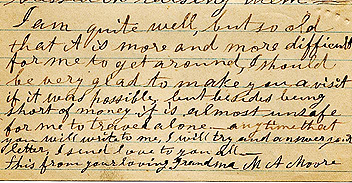 I am quite well, but so old
that it is more and more difficult
for me to get around, I should
be very glad to make you a visit
if it was possible, but besides being
short of money it is almost unsafe
for me to travel alone - anytime that
you will write to me, I will try and answer your
letter, I send love to you all -
This from your loving Grandma M A Moore